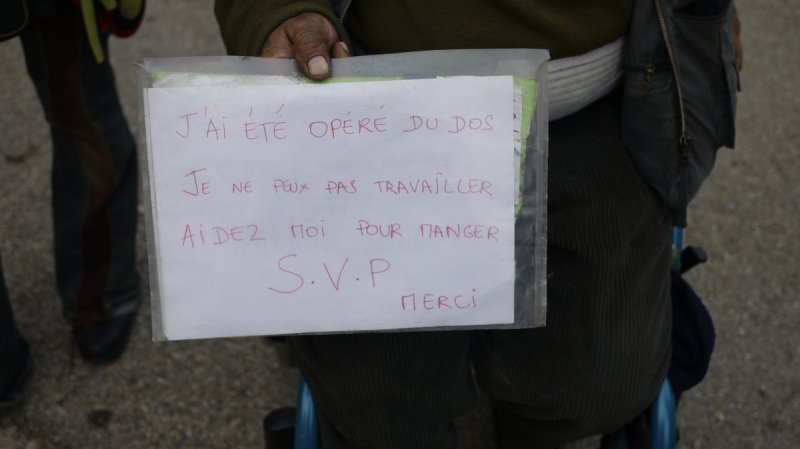 J'AI ÉTÉ OPÉRÉ DU DOS
JE NE PEUX PAS TRAVAÎLLER
AiDEZ MOI POUR MANGER
S.V.P
MERCi